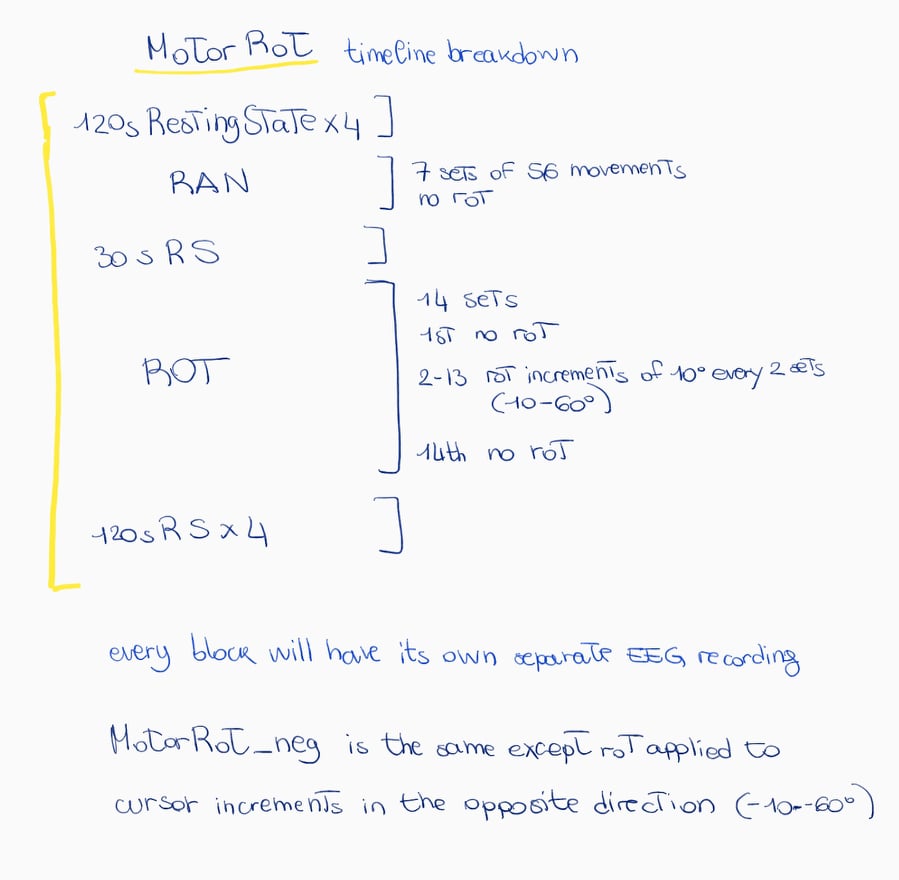 MotorRot timeline breakdown
120s RestingState x 4
RAN
7 sets of 56 movements
no rot
30 s RS
ROT
14 sets
1st no rot
2-13 rot increments of 10° every 2 sets
(10-60°)
14th no rot
120s RS x 4
every block will have its own separate EEG recording
MotorRot_neg is the same except rot applied to
cursor increments in the opposite direction (-10--60°)